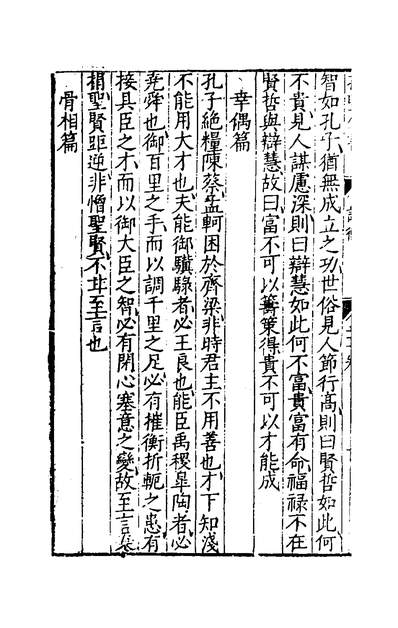 智如孔子猶無成立之功世俗見人節行高則曰賢哲如此何
不貴見人謀慮深則曰辯慧如此何不富貴富有命福祿不在
賢哲與辯慧故曰富不可以籌策得貴不可以才能成
幸偶篇
孔子絶糧陳蔡孟軻困於齊梁非時君主不用善也才下知淺
不能用大才也夫能御驥騄者必王良也能臣禹稷臯陶者必
堯舜也御百里之手而以調千里之足必有摧衡折軛之患有
接具臣之才而以御大臣之智必有閉心塞意之變故至言棄
捐聖賢距逆非憎聖賢不甘至言也
骨相篇